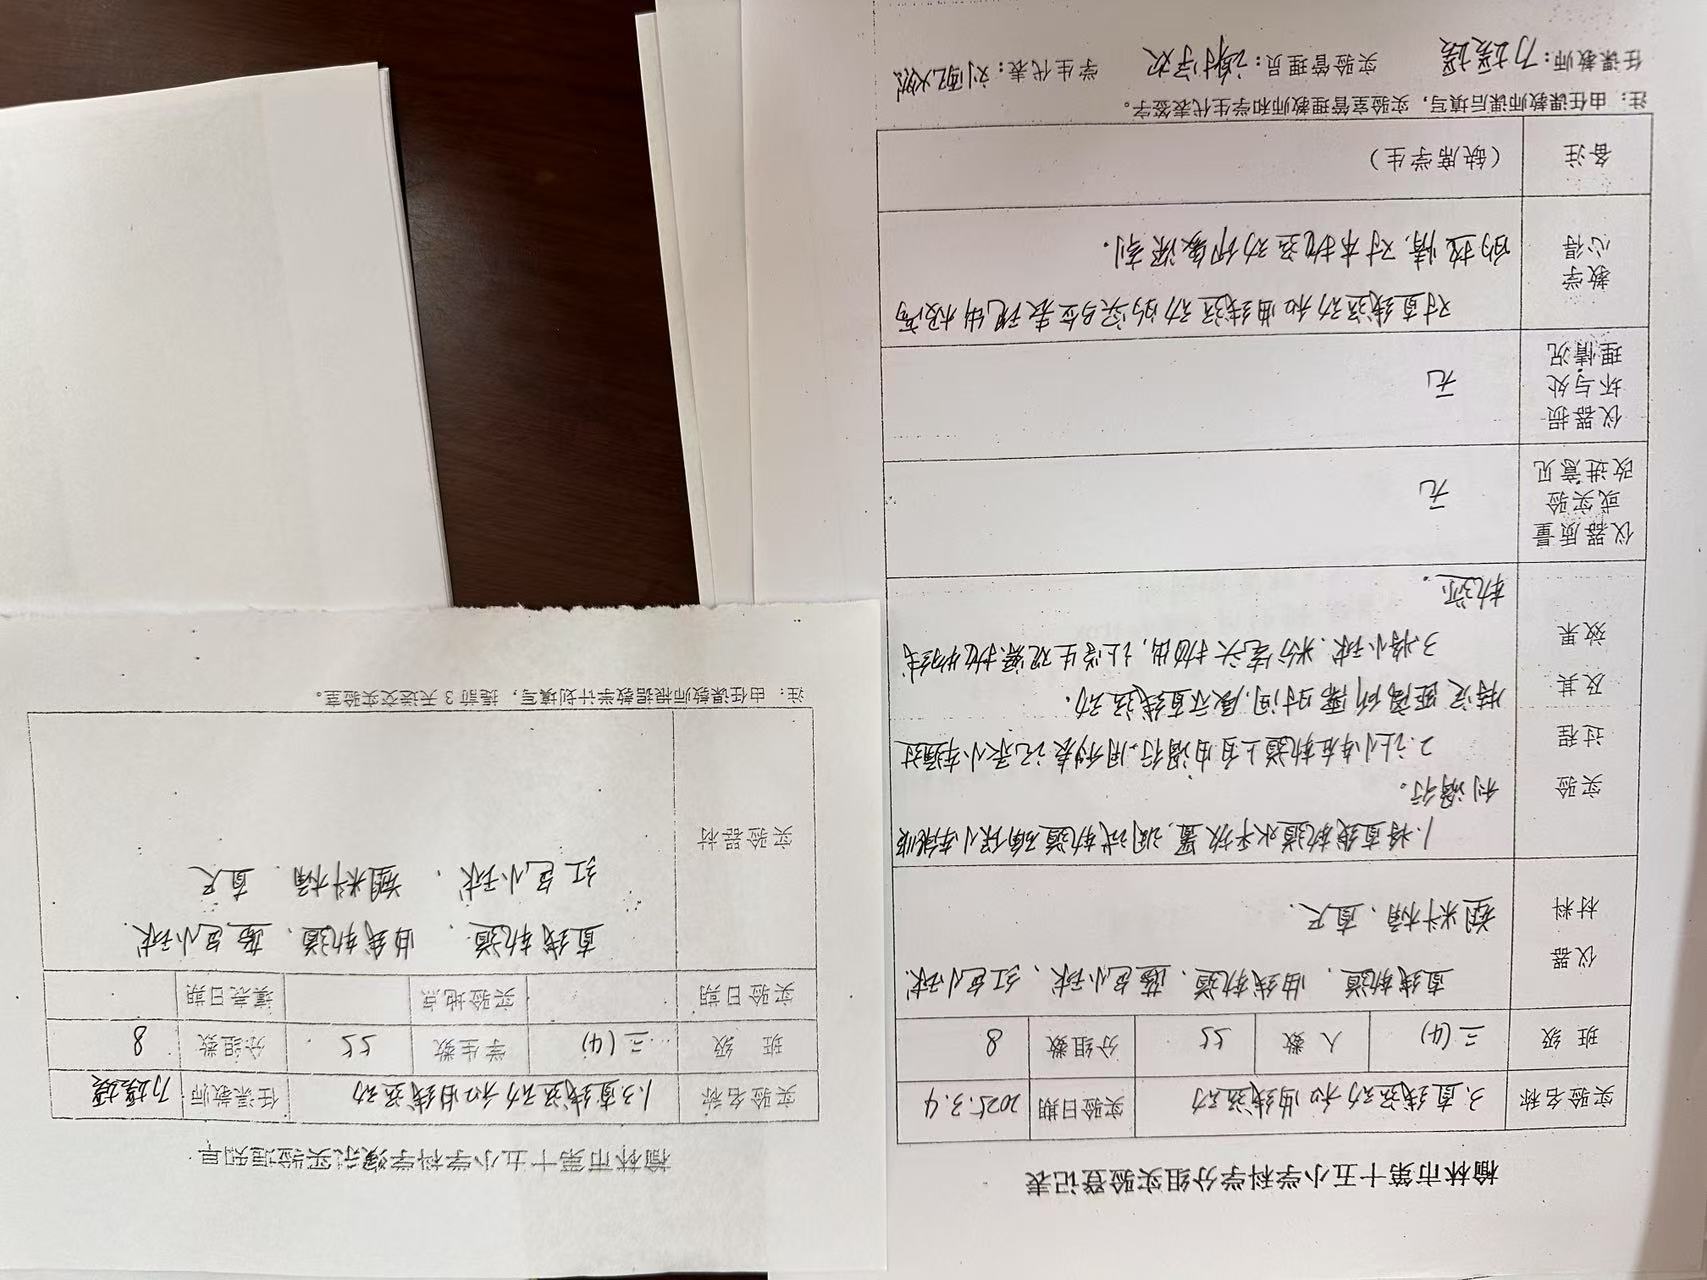 榆林市第十五小学科学分组实验登记表
实验名称 3.直线运动和曲线运动 实验日期 2025.3.4
班 级 三(4) 人 数 55 分组数 8
仪器材料 直线轨道、曲线轨道、蓝色小球、红色小球
塑料桶、直尺.
实验过程及其效果 1.将直线轨道水平放置,调试轨道确保小车能顺
利滑行。
2.让小车在轨道上自由滑行.用秒表记录小车通过
特定距离所需时间,展示直线运动.
3.将小球.粉笔头抛出,让学生观察抛物线
轨迹.
仪器质量或实验改进意见 无
仪器损坏与处理情况 无
教学心得 对直线运动和曲线运动的实验表现出极高
的热情,对本抛运动印象深刻.
备注 (缺席学生)
注:由任课教师课后填写,实验室管理教师和学生代表签字。
任课教师: 实验管理员: 学生代表:
榆林市第十五小学科学演示实验通知单
实验名称 1.3直线运动和曲线运动 任课教师
班 级 三(4) 学生数 55 分组数 8
实验日期 实验地点 填表日期
实验器材 直线轨道、曲线轨道、蓝色小球
红色小球、塑料桶、直尺
注:由任课教师根据教学计划填写,提前3天送交实验室。